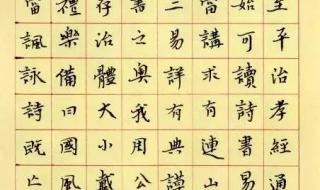 至平治孝經通
始可讀詩書易
當講求有連山
三易詳有典謨
書之奧我周公
存治體大小戴
禮樂備曰國風
當諷詠詩既亡